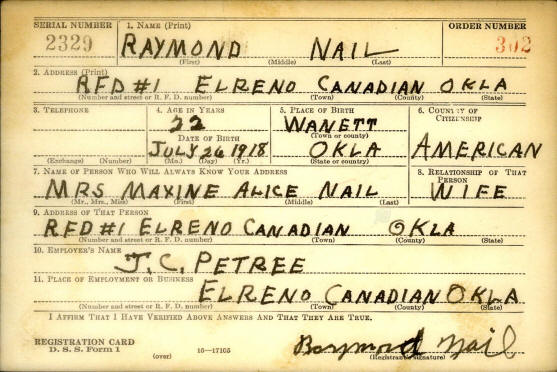 SERIAL NUMBER 1. NAME (Print) ORDER NUMBER
2329 RAYMOND NAIL 302
(First) (Middle) (Last)
2. ADDRESS (Print)
RFD #1 ELRENO CANADIAN OKLA
(Number and street or R. F. D. number) (Town) (County) (State)
3. TELEPHONE 4. AGE IN YEARS 5. PLACE OF BIRTH 6. COUNTRY OF CITIZENSHIP
22 WANETT
DATE OF BIRTH (Town or county)
JULY 26 1918 OKLA AMERICAN
(Exchange) (Number) (Mo.) (Day) (Yr.) (State or country)
7. NAME OF PERSON WHO WILL ALWAYS KNOW YOUR ADDRESS 8. RELATIONSHIP OF THAT PERSON
MRS MAXINE ALICE NAIL WIFE
(Mr., Mrs., Miss) (First) (Middle) (Last)
9. ADDRESS OF THAT PERSON
RFD #1 ELRENO CANADIAN OKLA
(Number and street or R. F. D. number) (Town) (County) (State)
10. EMPLOYER'S NAME
J. C. PETREE
11. PLACE OF EMPLOYMENT OR BUSINESS
ELRENO CANADIAN OKLA
(Number and street or R. F. D. number) (Town) (County) (State)
I AFFIRM THAT I HAVE VERIFIED ABOVE ANSWERS AND THAT THEY ARE TRUE.
REGISTRATION CARD Raymond Nail
D. S. S. Form 1 (over) 16—17105 (Registrant's signature)